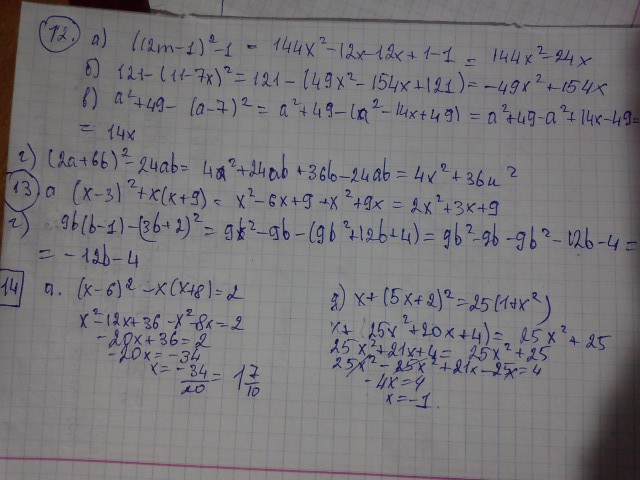 12. а) (12m-1)²-1 = 144x²-12x-12x+1-1 = 144x²-24x
б) 121-(11-7x)² = 121-(49x²-154x+121) = -49x²+154x
в) a²+49-(a-7)² = a²+49-(a²-14x+49) = a²+49-a²+14x-49=
= 14x
г) (2a+6b)²-24ab = 4a²+24ab+36b-24ab = 4x²+36u²
13 а (x-3)²+x(x+9) = x²-6x+9+x²+9x = 2x²+3x+9
г) 9b(b-1)-(3b+2)² = 9b²-9b-(9b²+12b+4) = 9b²-9b-9b²-12b-4=
= -12b-4
14 а. (x-6)²-x(x+8)=2
x²-12x+36-x²-8x=2
-20x+36=2
-20x=-34
x= -34/20 = 1 7/10
д) x+(5x+2)²=25(1+x²)
x+(25x²+20x+4)= 25x²+25
25x²+21x+4= 25x²+25
25x²-25x²+21x-25x=4
-4x=4
x=-1.